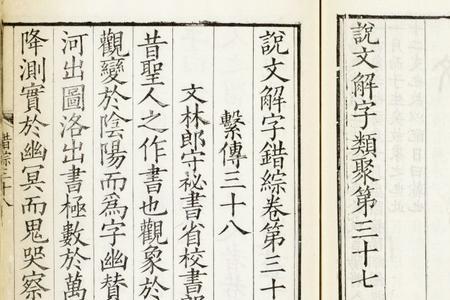 說文解字類聚第三十七
說文解字錯綜卷第三十
繫傳三十八
文林郎守祕書省校書郎
昔聖人之作書也觀象於
觀變於陰陽而爲字幽贊
河出圖洛出書極數於萬
降測實於幽冥而鬼哭察
錯綜三十八